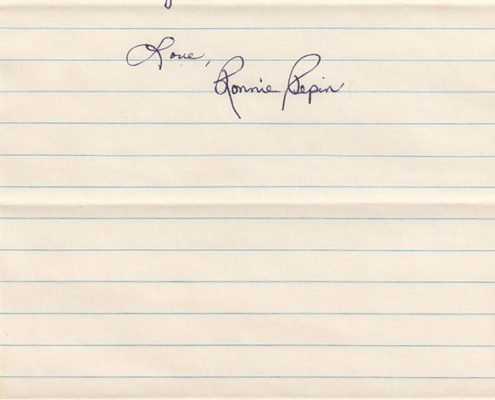 Love,
Ronnie Pepin